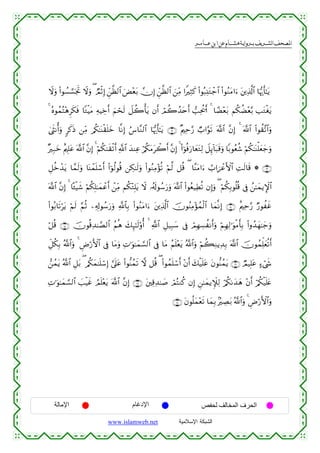 المصحف الشريف برواية هشام عن ابن عامر
يَٰٓأَيُّهَا ٱلَّذِينَ ءَامَنُوا۟ ٱجْتَنِبُوا۟ كَثِيرًا مِّنَ ٱلظَّنِّ إِنَّ بَعْضَ ٱلظَّنِّ إِثْمٌ وَلَا تَجَسَّسُوا۟ وَلَا
يَغْتَب بَّعْضُكُم بَعْضًا أَيُحِبُّ أَحَدُكُمْ أَن يَأْكُلَ لَحْمَ أَخِيهِ مَيْتًا فَكَرِهْتُمُوهُ
وَٱتَّقُوا۟ ٱللَّهَ إِنَّ ٱللَّهَ تَوَّابٌ رَّحِيمٌ يَٰٓأَيُّهَا ٱلنَّاسُ إِنَّا خَلَقْنَٰكُم مِّن ذَكَرٍ وَأُنثَىٰ
وَجَعَلْنَٰكُمْ شُعُوبًا وَقَبَآئِلَ لِتَعَارَفُوٓا۟ إِنَّ أَكْرَمَكُمْ عِندَ ٱللَّهِ أَتْقَىٰكُمْ إِنَّ ٱللَّهَ عَلِيمٌ خَبِيرٌ
قَالَتِ ٱلْأَعْرَابُ ءَامَنَّا قُل لَّمْ تُؤْمِنُوا۟ وَلَٰكِن قُولُوٓا۟ أَسْلَمْنَا وَلَمَّا يَدْخُلِ
ٱلْإِيمَٰنُ فِى قُلُوبِكُمْ وَإِن تُطِيعُوا۟ ٱللَّهَ وَرَسُولَهُۥ لَا يَلِتْكُم مِّنْ أَعْمَٰلِكُمْ شَيْـًٔا إِنَّ ٱللَّهَ
غَفُورٌ رَّحِيمٌ إِنَّمَا ٱلْمُؤْمِنُونَ ٱلَّذِينَ ءَامَنُوا۟ بِٱللَّهِ وَرَسُولِهِۦ ثُمَّ لَمْ يَرْتَابُوا۟
وَجَٰهَدُوا۟ بِأَمْوَٰلِهِمْ وَأَنفُسِهِمْ فِى سَبِيلِ ٱللَّهِ أُو۟لَٰٓئِكَ هُمُ ٱلصَّٰدِقُونَ قُلْ
أَتُعَلِّمُونَ ٱللَّهَ بِدِينِكُمْ وَٱللَّهُ يَعْلَمُ مَا فِى ٱلسَّمَٰوَٰتِ وَمَا فِى ٱلْأَرْضِ وَٱللَّهُ بِكُلِّ
شَىْءٍ عَلِيمٌ يَمُنُّونَ عَلَيْكَ أَنْ أَسْلَمُوا۟ قُل لَّا تَمُنُّوا۟ عَلَىَّ إِسْلَٰمَكُم بَلِ ٱللَّهُ يَمُنُّ
عَلَيْكُمْ أَنْ هَدَىٰكُمْ لِلْإِيمَٰنِ إِن كُنتُمْ صَٰدِقِينَ إِنَّ ٱللَّهَ يَعْلَمُ غَيْبَ ٱلسَّمَٰوَٰتِ
وَٱلْأَرْضِ وَٱللَّهُ بَصِيرٌۢ بِمَا تَعْمَلُونَ
الحرف المخالف لحفص الإدغام الإمالة
الشبكة الإسلامية www.islamweb.net